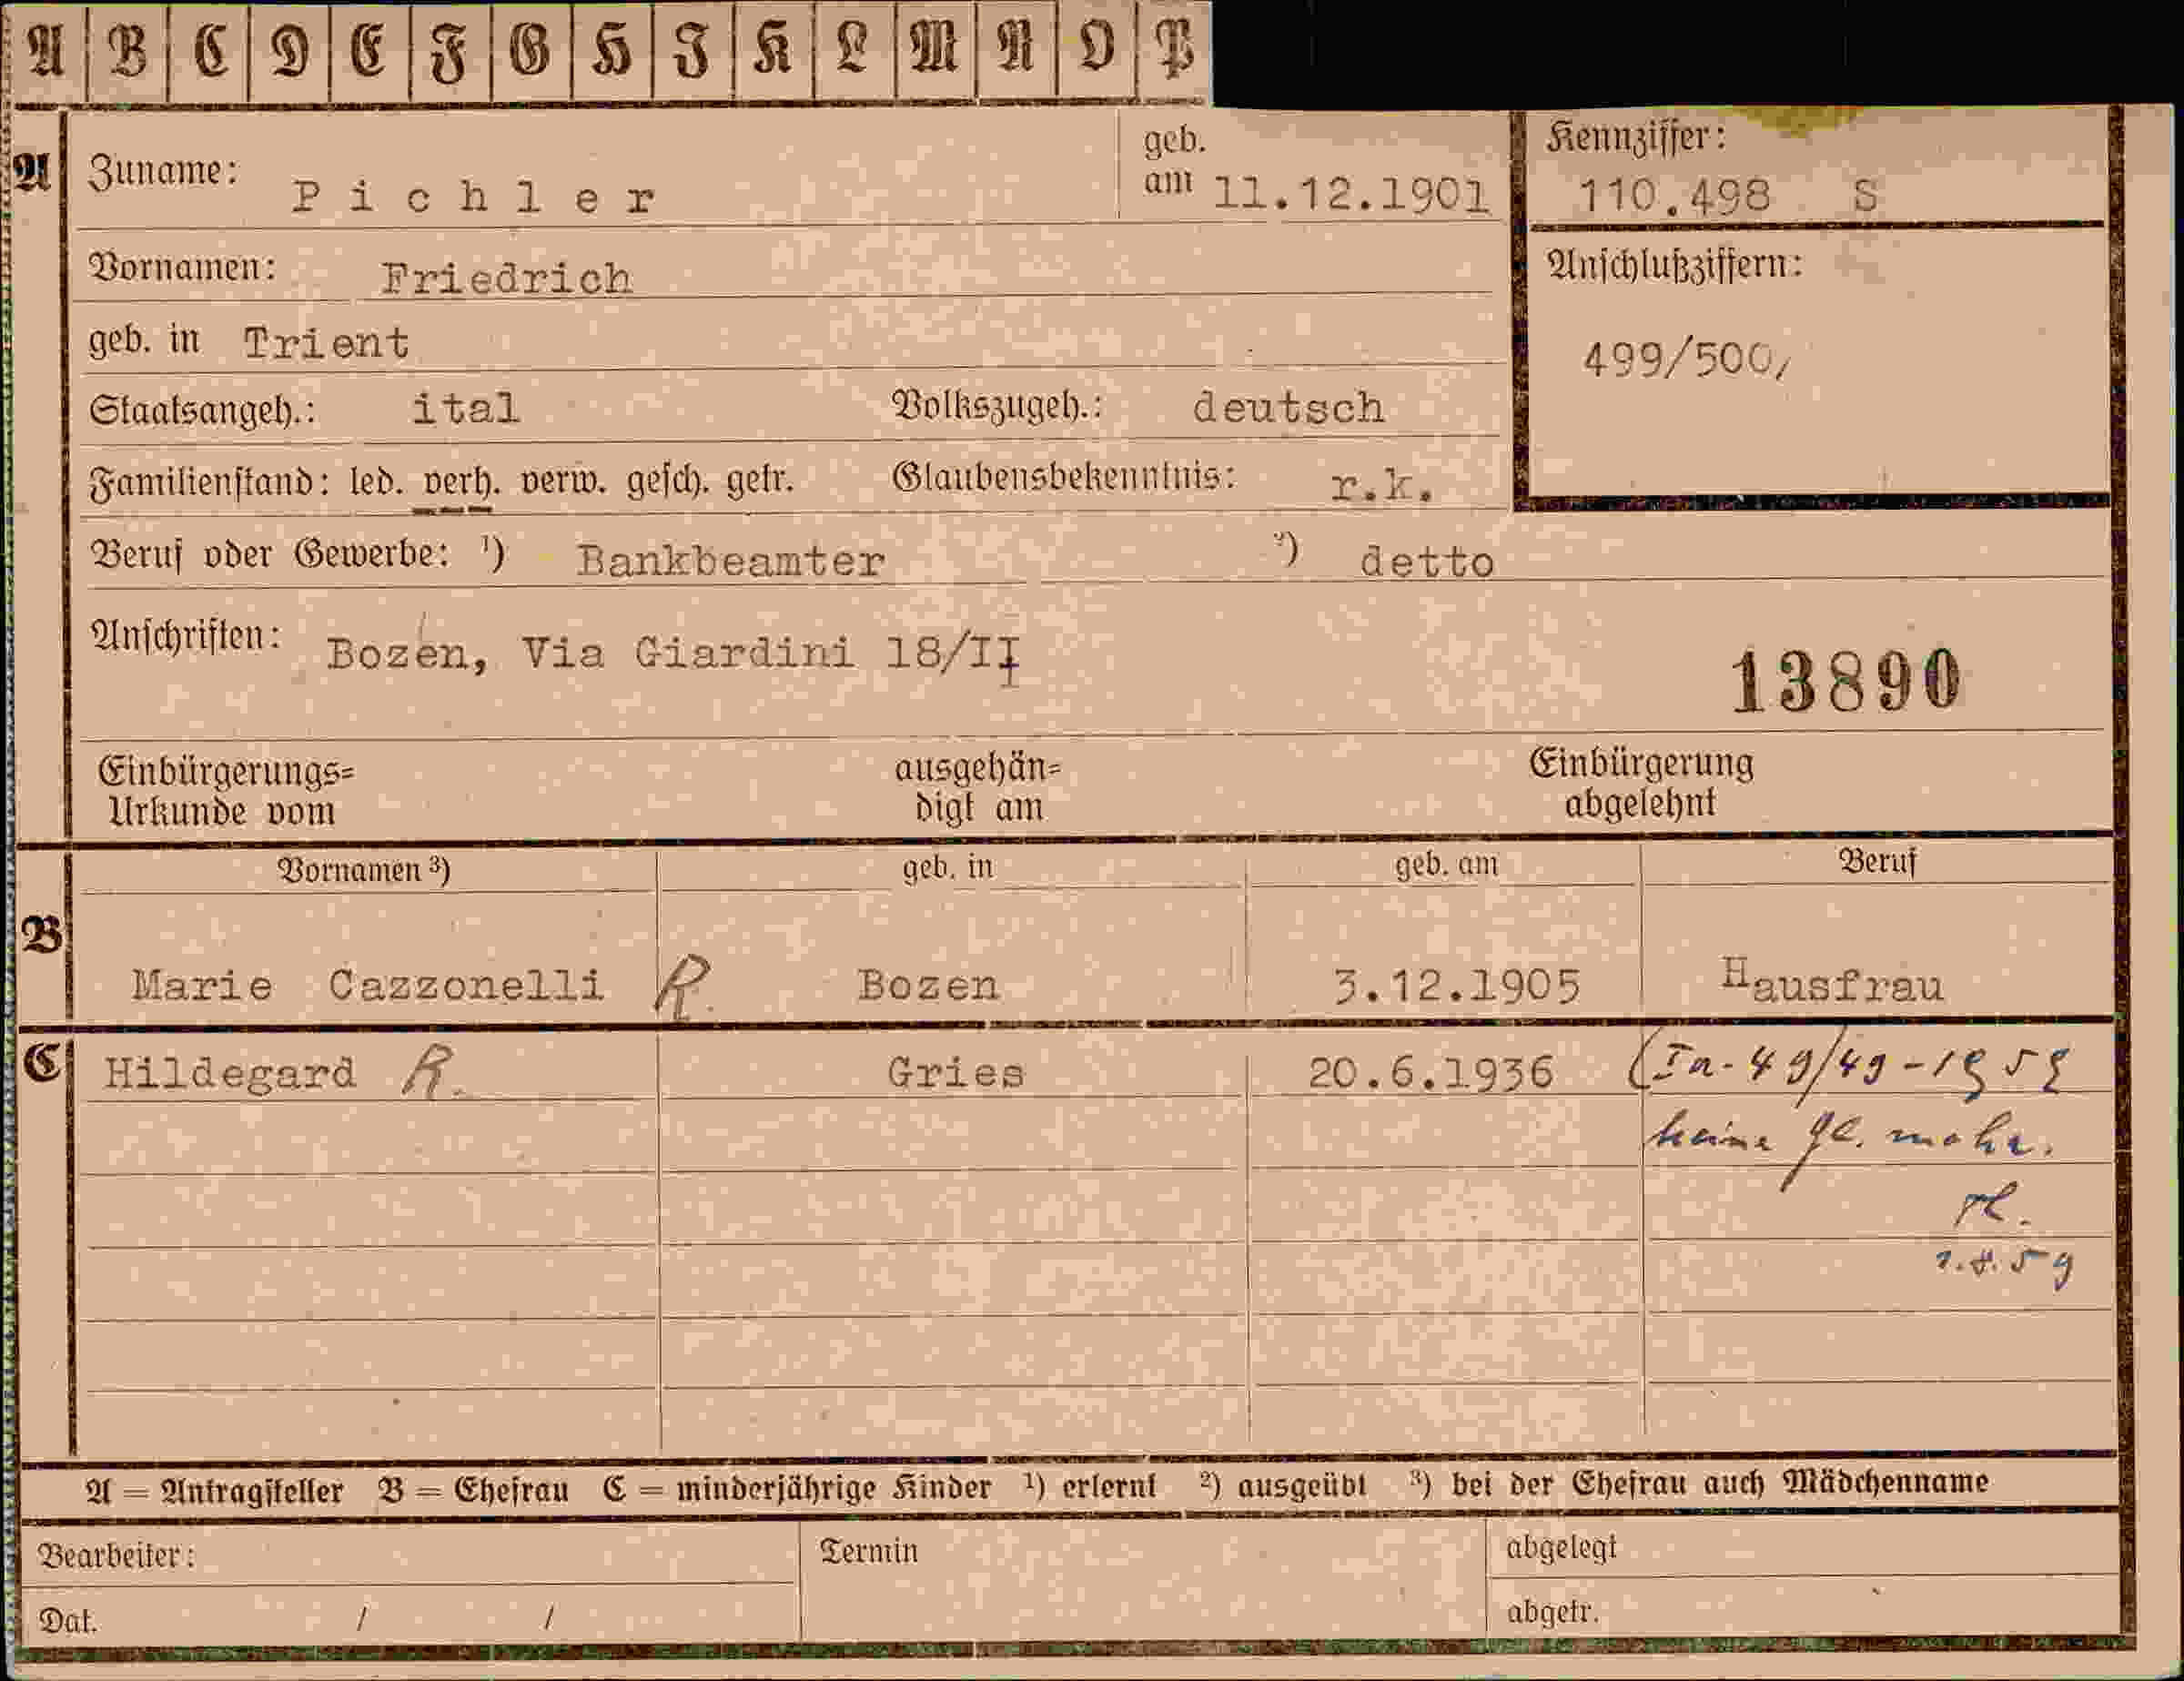 A B C D E F G H I K L M N O P
A Zuname: Pichler geb. am 11.12.1901 Kennziffer: 110.498 S
Vornamen: Friedrich Anschlußziffern:
geb. in Trient 499/500,
Staatsangeh.: ital Volkszugeh.: deutsch
Familienstand: led. verh. verw. gesch. getr. Glaubensbekenntnis: r.k.
Beruf oder Gewerbe: ¹) Bankbeamter ²) detto
Anschriften: Bozen, Via Giardini 18/II
13890
Einbürgerungs= ausgehän= Einbürgerung
Urkunde vom digt am abgelehnt
Vornamen ³) geb. in geb. am Beruf
B
Marie Cazzonelli R. Bozen 3.12.1905 Hausfrau
C Hildegard R. Gries 20.6.1936
keine
A = Antragsteller B = Ehefrau C = minderjährige Kinder ¹) erlernt ²) ausgeübt ³) bei der Ehefrau auch Mädchenname
Bearbeiter: Termin abgelegt
Dat. / / abgetr.